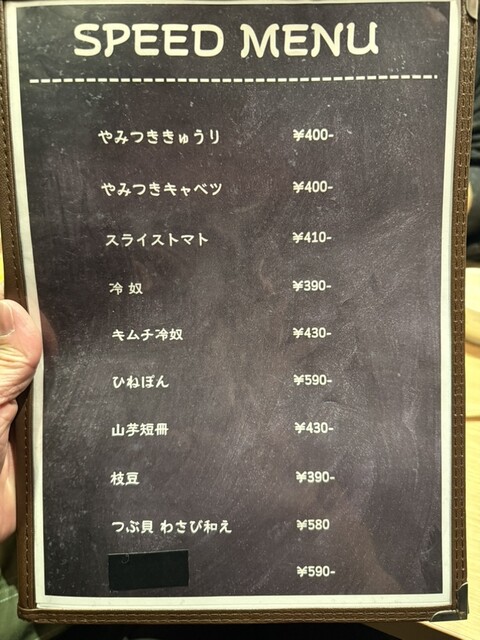 SPEED MENU
やみつききゅうり ¥400-
やみつきキャベツ ¥400-
スライストマト ¥410-
冷奴 ¥390-
キムチ冷奴 ¥430-
ひねぽん ¥590-
山芋短冊 ¥430-
枝豆 ¥390-
つぶ貝 わさび和え ¥580
¥590-